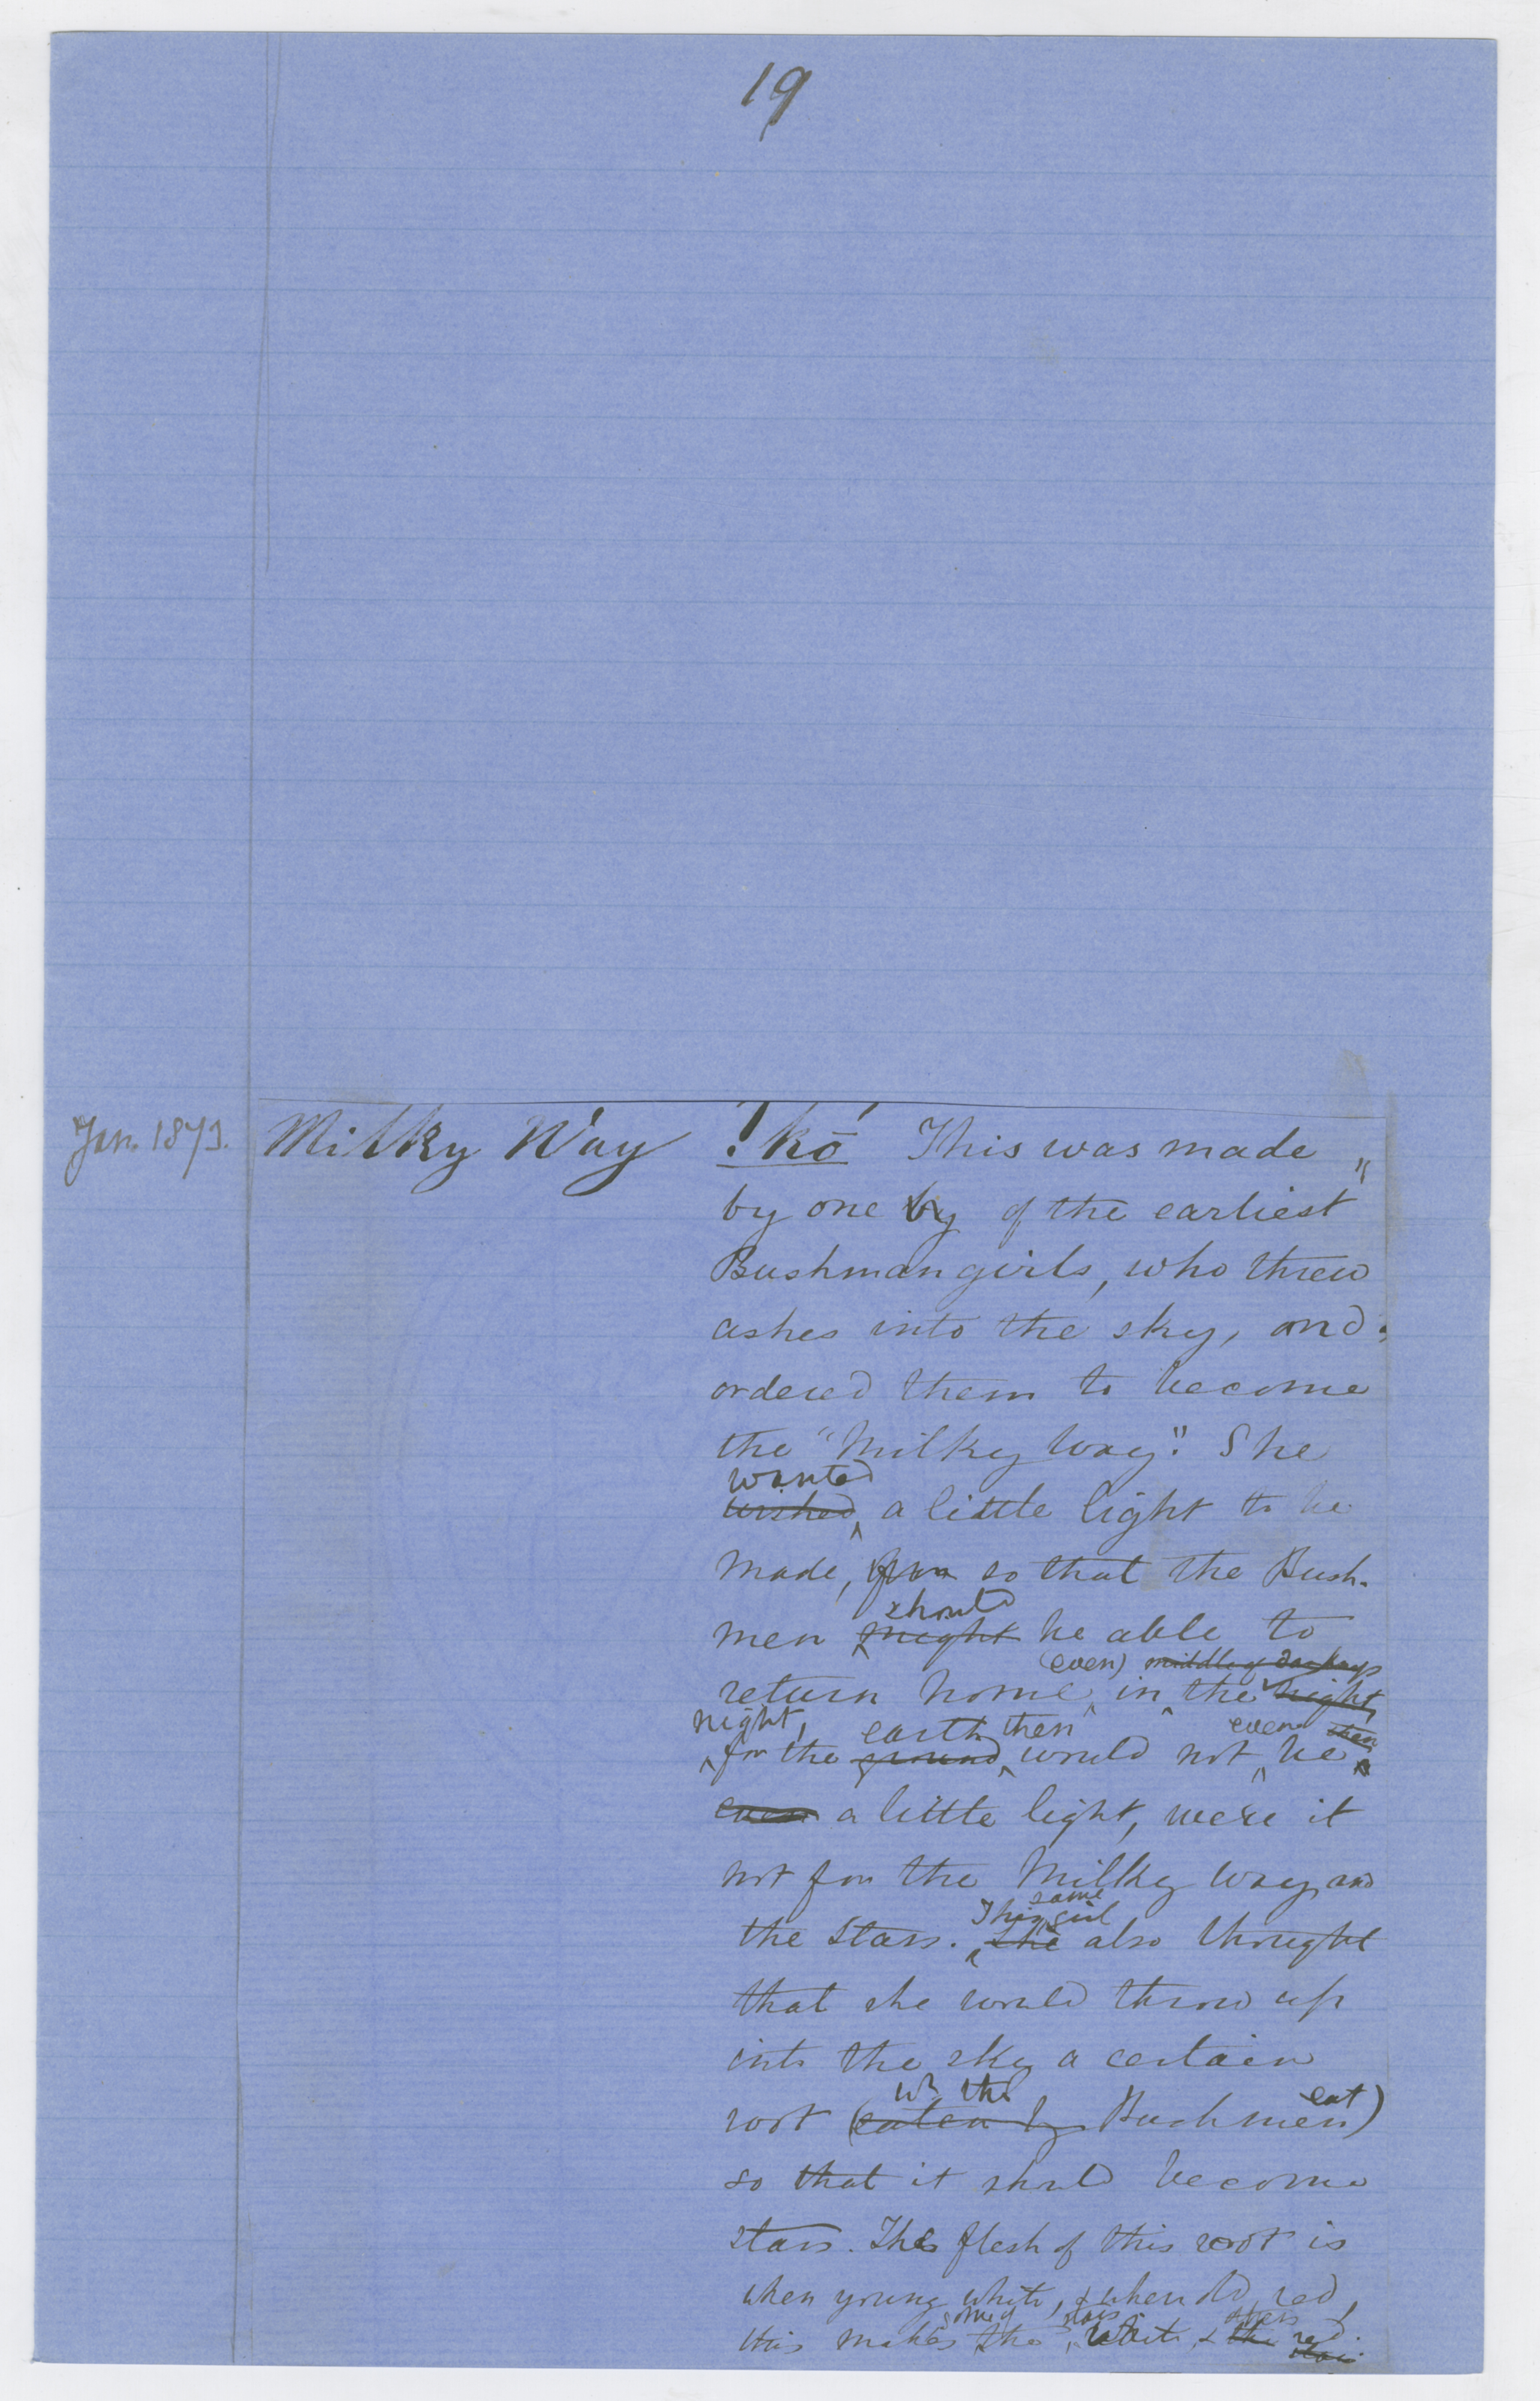 19
Jan. 1873. Milky Way !kō This was made
by one by of the earliest
Bushman girls, who threw
ashes into the sky, and
ordered them to become
the "Milky Way". She
wanted
wished a little light to be
made, for so that the Bush-
should
men might be able to
(even) middle of
return home in the night,
night, earth then even then
for the ground would not be
even a little light, were it
not for the Milky Way and
same
This girl
the Stars. She also thought
that she would throw up
into the sky a certain
wh the eat
root (eaten by Bushmen)
so that it should become
stars. The flesh of this root is
when young white, & when old red,
some of stars others
this makes the white, & the red.
stars